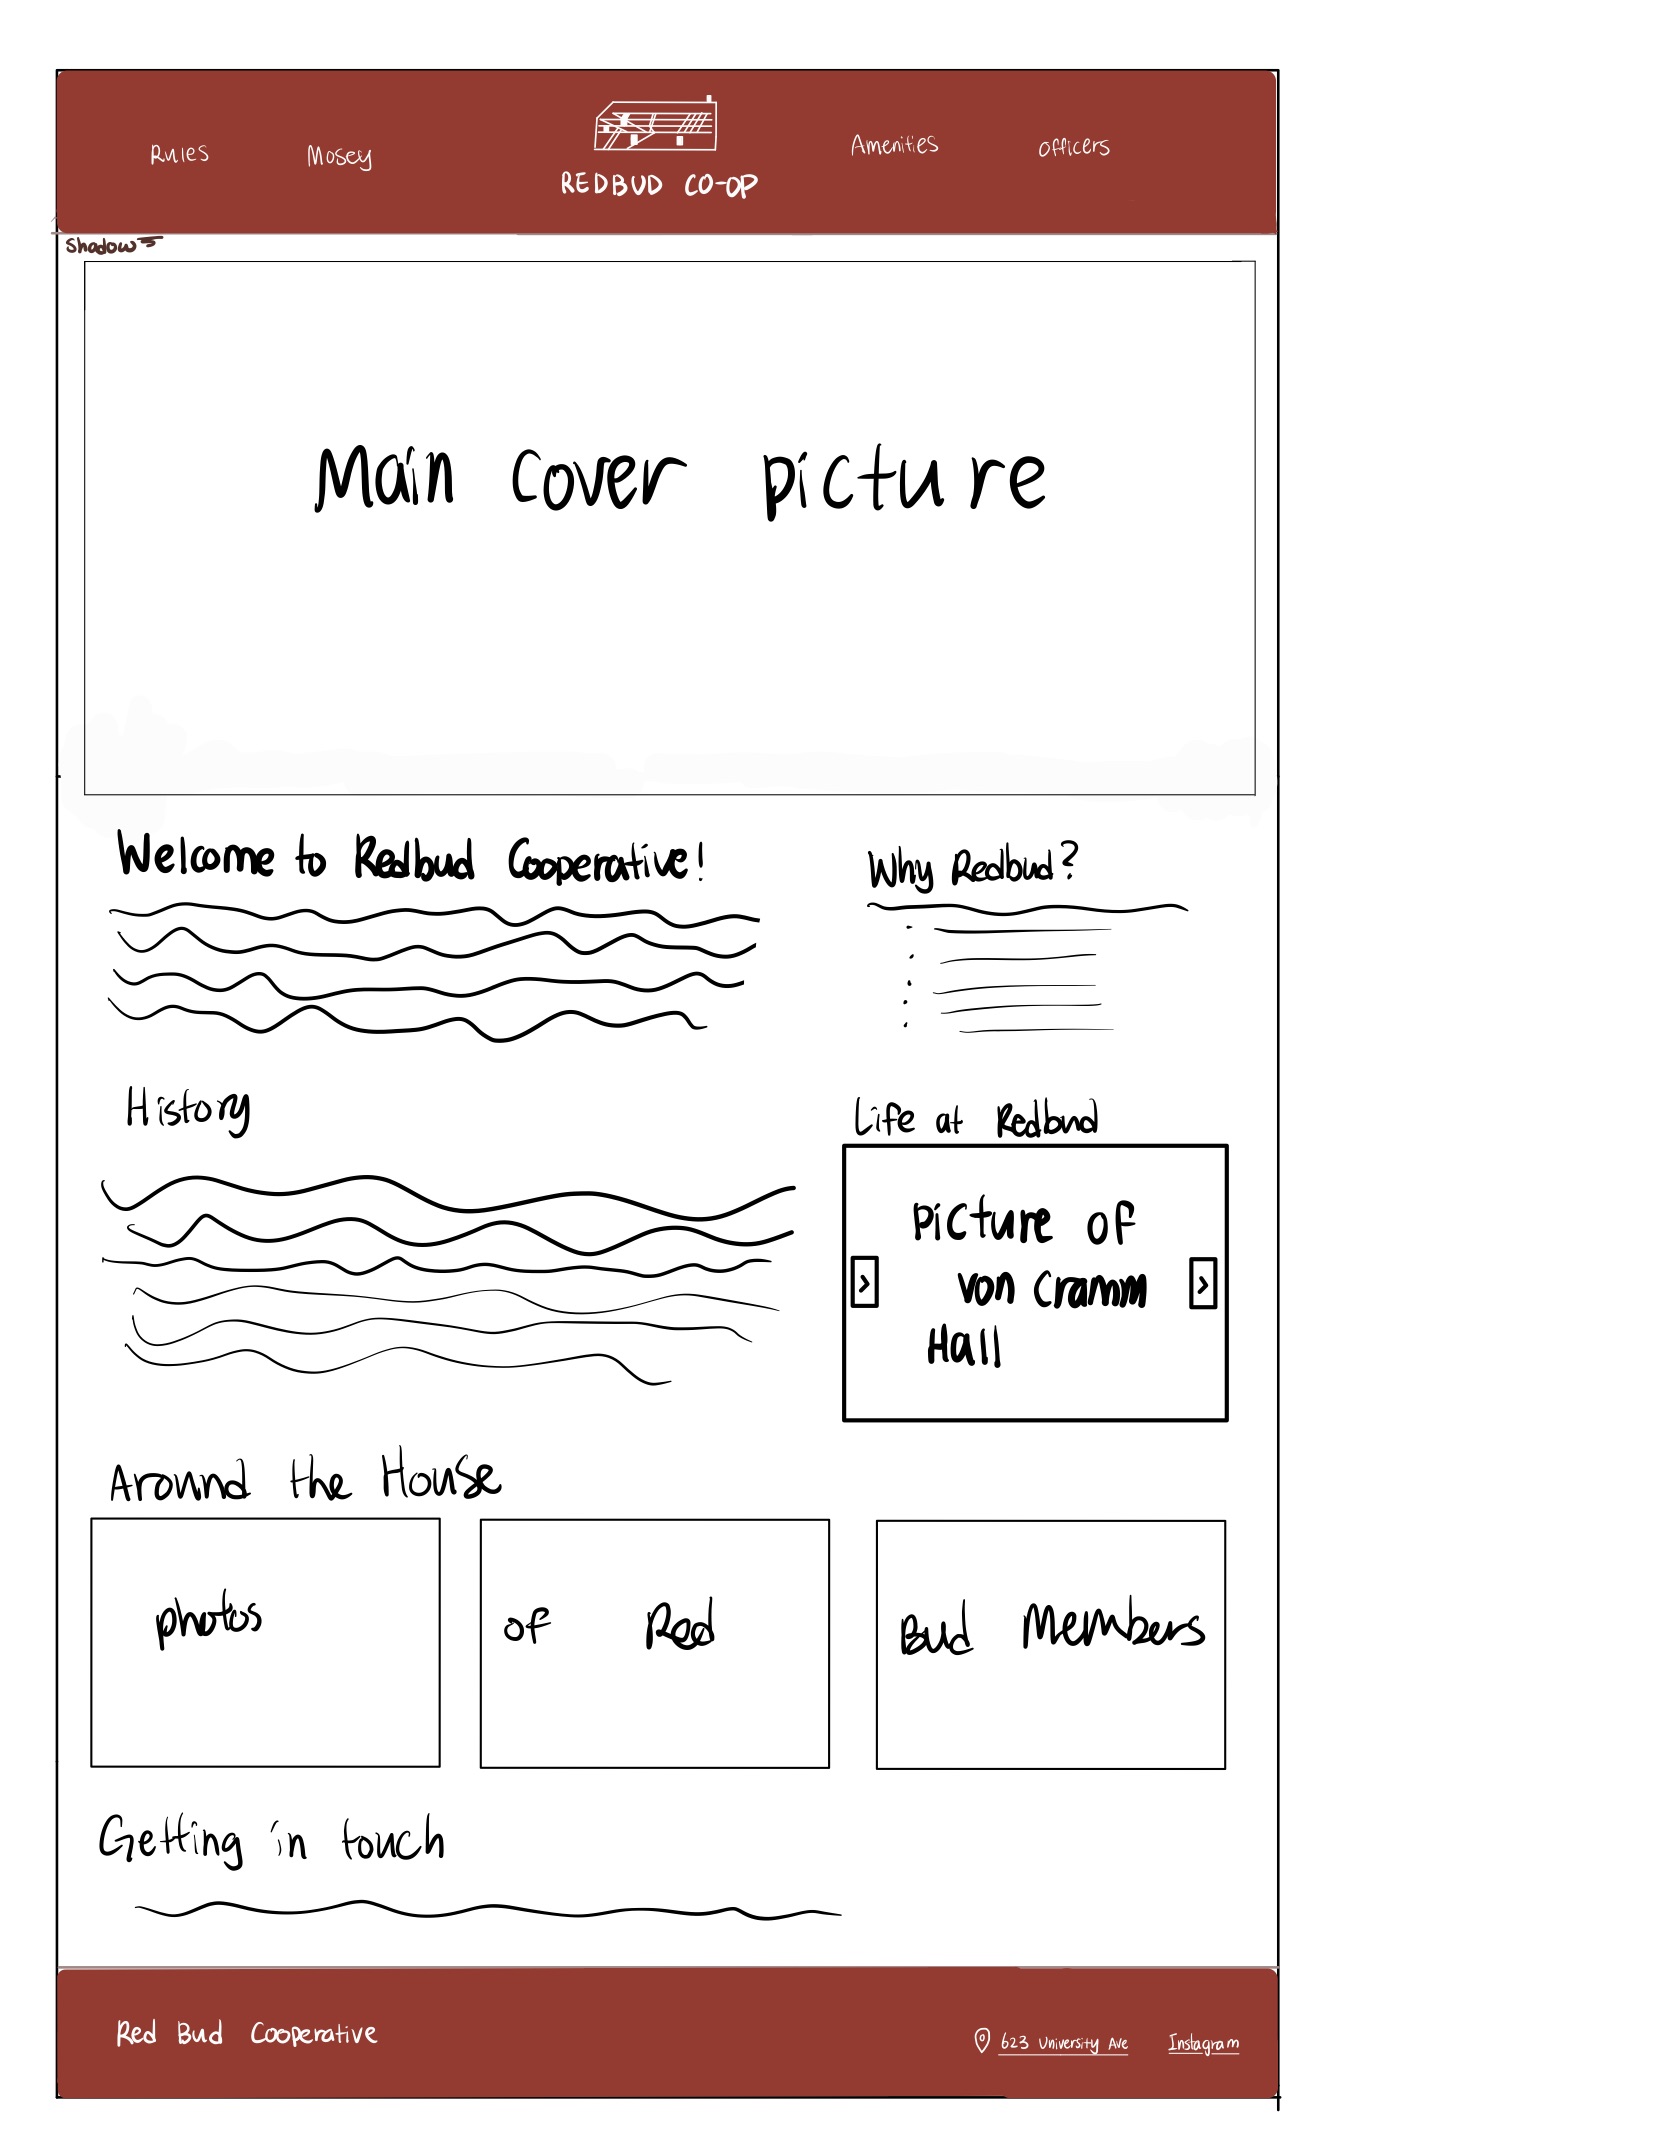 Rules Mosey Amenities officers
REDBUD CO-OP
Shadow
Main cover picture
Welcome to Redbud Cooperative!
Why Redbud?
History
Life at Redbud
Picture of
von Cramm
Hall
Around the House
photos of Red Bud Members
Getting in touch
Red Bud Cooperative
623 University Ave Instagram